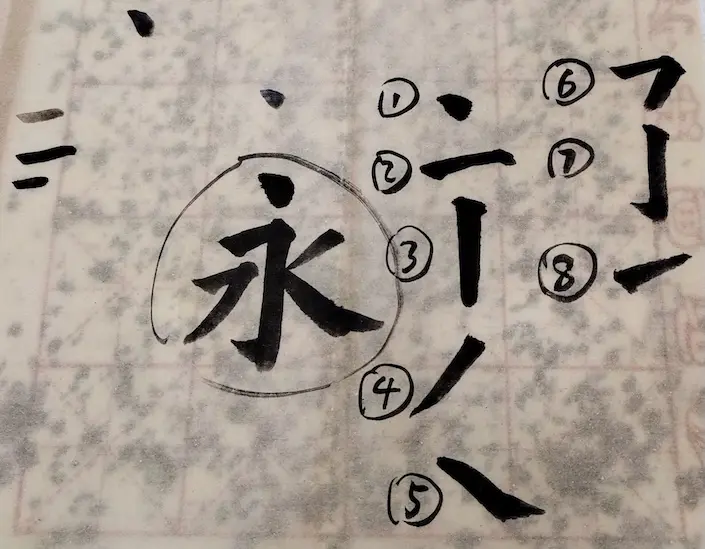 永
①
②
③
④
⑤
⑥
⑦
⑧